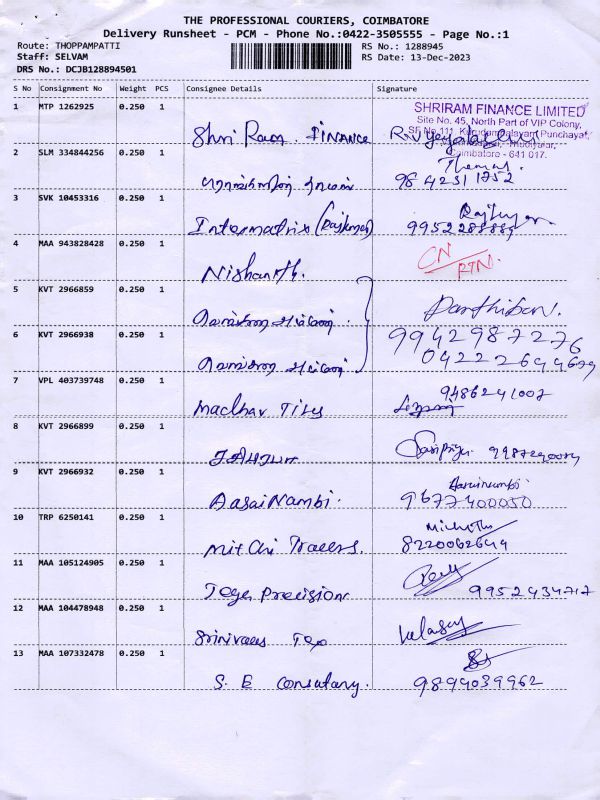 THE PROFESSIONAL COURIERS, COIMBATORE
Delivery Runsheet - PCM - Phone No.:0422-3505555 - Page No.:1
Route: THOPPAMPATTI
RS No.: 1288945
Staff: SELVAM
RS Date: 13-Dec-2023
DRS No.: DCJB128894501
S No Consignment No Weight PCS Consignee Details Signature
1 MTP 1262925 0.250 1
SHRIRAM FINANCE LIMITED
Site No. 45, North Part of VIP Colony,
Coimbatore - 641 017.
Shri Ram. FINANCE
2 SLM 334844256 0.250 1
98 42311752
3 SVK 10453316 0.250 1
Intermatrix (Rajkumar)
4 MAA 943828428 0.250 1
Nishanth.
CN
RTN.
5 KVT 2966859 0.250 1
Parthiban.
6 KVT 2966938 0.250 1
9942987276
04222644679
7 VPL 403739748 0.250 1
Madhav Tiles
9486241007
8 KVT 2966899 0.250 1
9 KVT 2966932 0.250 1
AasaiNambi.
9677400050
10 TRP 6250141 0.250 1
8220062644
11 MAA 105124905 0.250 1
Precision
9952434717
12 MAA 104478948 0.250 1
Srinivas Tex
13 MAA 107332478 0.250 1
S. E Consultancy.
9894039962